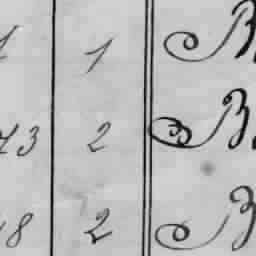 1 1 B
73 2 B
18 2 B